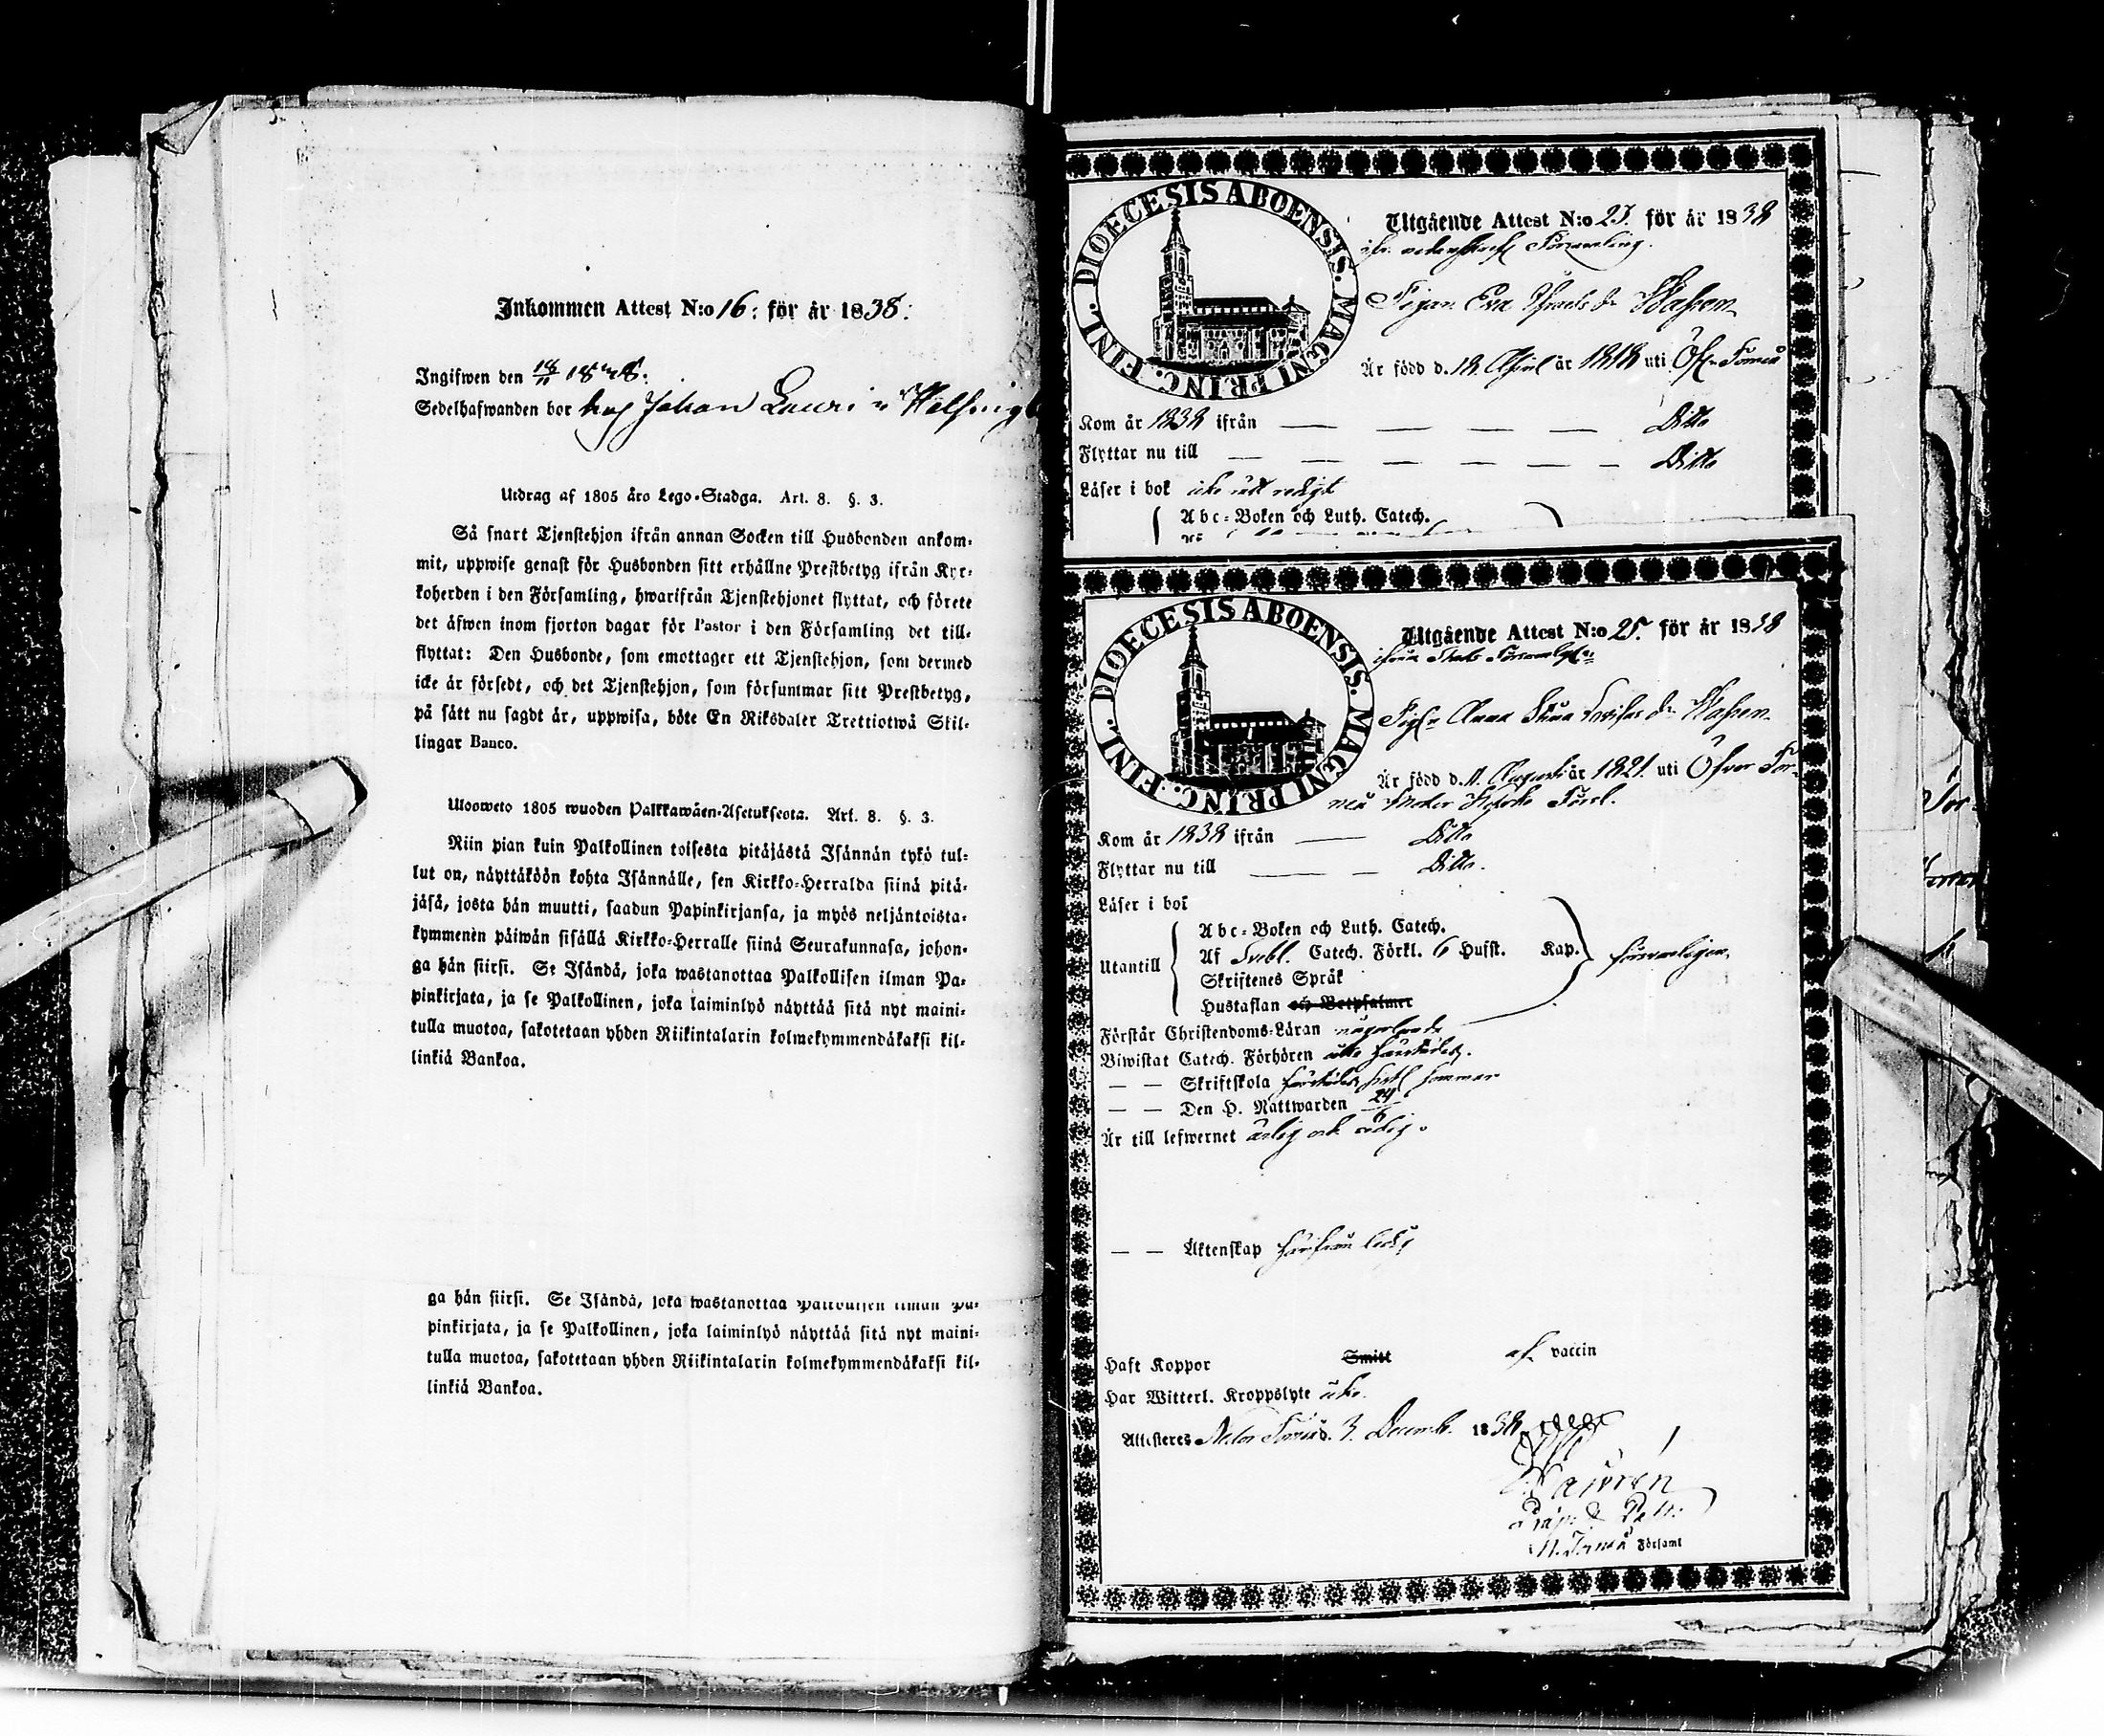 Inkommen Attest N:o 16: för år 1838:
Ingifwen den 18/11 1838:
Sedelhafwanden bor hos Johan Lauri i
Utdrag af 1805 åro Lego-Stadga. Art. 8. §. 3.
Så snart Tjenstehjon ifrån annan Socken till Husbonden ankom-
mit, uppwise genast för Husbonden sitt erhållne Prestbetyg ifrån Kyr-
koherden i den Församling, hwarifrån Tjenstehjonet flyttat, och förete
det äfwen inom fjorton dagar för Pastor i den Församling det till-
flyttat: Den Husbonde, som emottager ett Tjenstehjon, som dermed
icke är försedt, och det Tjenstehjon, som försummar sitt Prestbetyg,
på sätt nu sagdt är, uppwisa, böte En Riksdaler Trettiotwå Skil-
lingar Banco.
Uloosweto 1805 wuoden Palkkawäen-Asetuksesta. Art. 8. §. 3.
Niin pian kuin Palkollinen toisesta pitäjästä Isännän tykö tul-
lut on, näyttäköön kohta Isännälle, sen Kirkko-Herralda siinä pitä-
jäsä, josta hän muutti, saadun Papinkirjansa, ja myös neljäntoista-
kymmenen päiwän sisällä Kirkko-Herralle siinä Seurakunnasa, johon-
ga hän siirsi. Se Isändä, joka wastanottaa Palkollisen ilman Pa-
pinkirjata, ja se Palkollinen, joka laiminlyö näyttää sitä nyt maini-
tulla muotoa, sakotetaan yhden Riikintalarin kolmekymmendäkaksi kil-
linkiä Bankoa.
ga hän siirsi. Se Isändä, joka wastanottaa Palkollisen ilman Pa-
pinkirjata, ja se Palkollinen, joka laiminlyö näyttää sitä nyt maini-
tulla muotoa, sakotetaan yhden Riikintalarin kolmekymmendäkaksi kil-
linkiä Bankoa.
DIOECESIS ABOENSIS. MAGNI PRINC. FINL.
Utgående Attest N:o 23. för år 1838
Församling.
Pigan Eva
Är född d. 18 April år 1818 uti Öfv. Torneå
Kom år 1838 ifrån Ditto
Flyttar nu till Ditto
Läser i bok
Abc-Boken och Luth. Catech.
DIOECESIS ABOENSIS. MAGNI PRINC. FINL.
Utgående Attest N:o 25. för år 1838
Pigan Anna
Är född d. 11 Augusti år 1821. uti Öfver Tor-
neå
Kom år 1838 ifrån Ditto
Flyttar nu till Ditto.
Läser i bok
Utantill
Abc-Boken och Luth. Catech.
Af Svebl. Catech. Förkl. 6 Hufst. Kap.
Skriftenes Språk
Hustaflan och Botpsalmer
försvarligen
Förstår Christendoms-Läran någorlunda
Biwistat Catech. Förhören
— — Skriftskola sommar
— — Den H. Nattwarden 24/6
Är till lefwernet ärlig och sedig.
— — Äktenskap härifrån ledig
Haft Koppor Smitt af vaccin
Har Witterl. Kroppslyte icke.
Attesteres Neder Torneå d. 3. Decemb. 1838
N. Torneå Församl